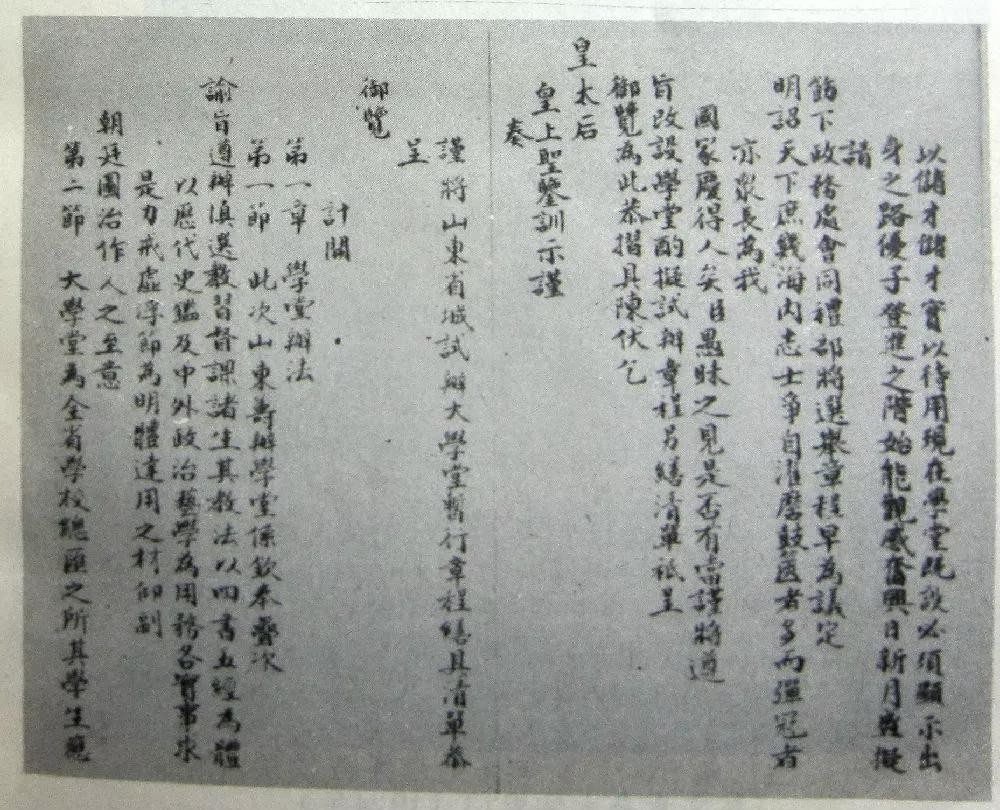 以儲才儲才實以待用現在學堂既設必須顯示出
身之路優予登進之階始能觀感奮興日新月盛擬
請
飭下政務處會同禮部將選舉章程早為議定
明詔天下庶幾海内志士爭自濯磨鼓篋者多而彈冠者
亦衆長為我
國家慶得人矣臣愚昧之見是否有當謹將遵
旨改設學堂酌擬試辦章程另繕清單祗呈
御覽為此恭摺具陳伏乞
皇太后
皇上聖鑒訓示謹
奏
謹將山東省城試辦大學堂暫行章程繕具清單恭
呈
御覽
計開
第一章 學堂辦法
第一節 此次山東籌辦學堂係欽奉疊次
諭旨遵辦慎選教習督課諸生其教法以四書五經為體
以歷代史鑑及中外政治藝學為用務各實事求
是力戒虛浮節為明體達用之材仰副
朝廷圖治作人之至意
第二節 大學堂為全省學校總匯之所其學生應